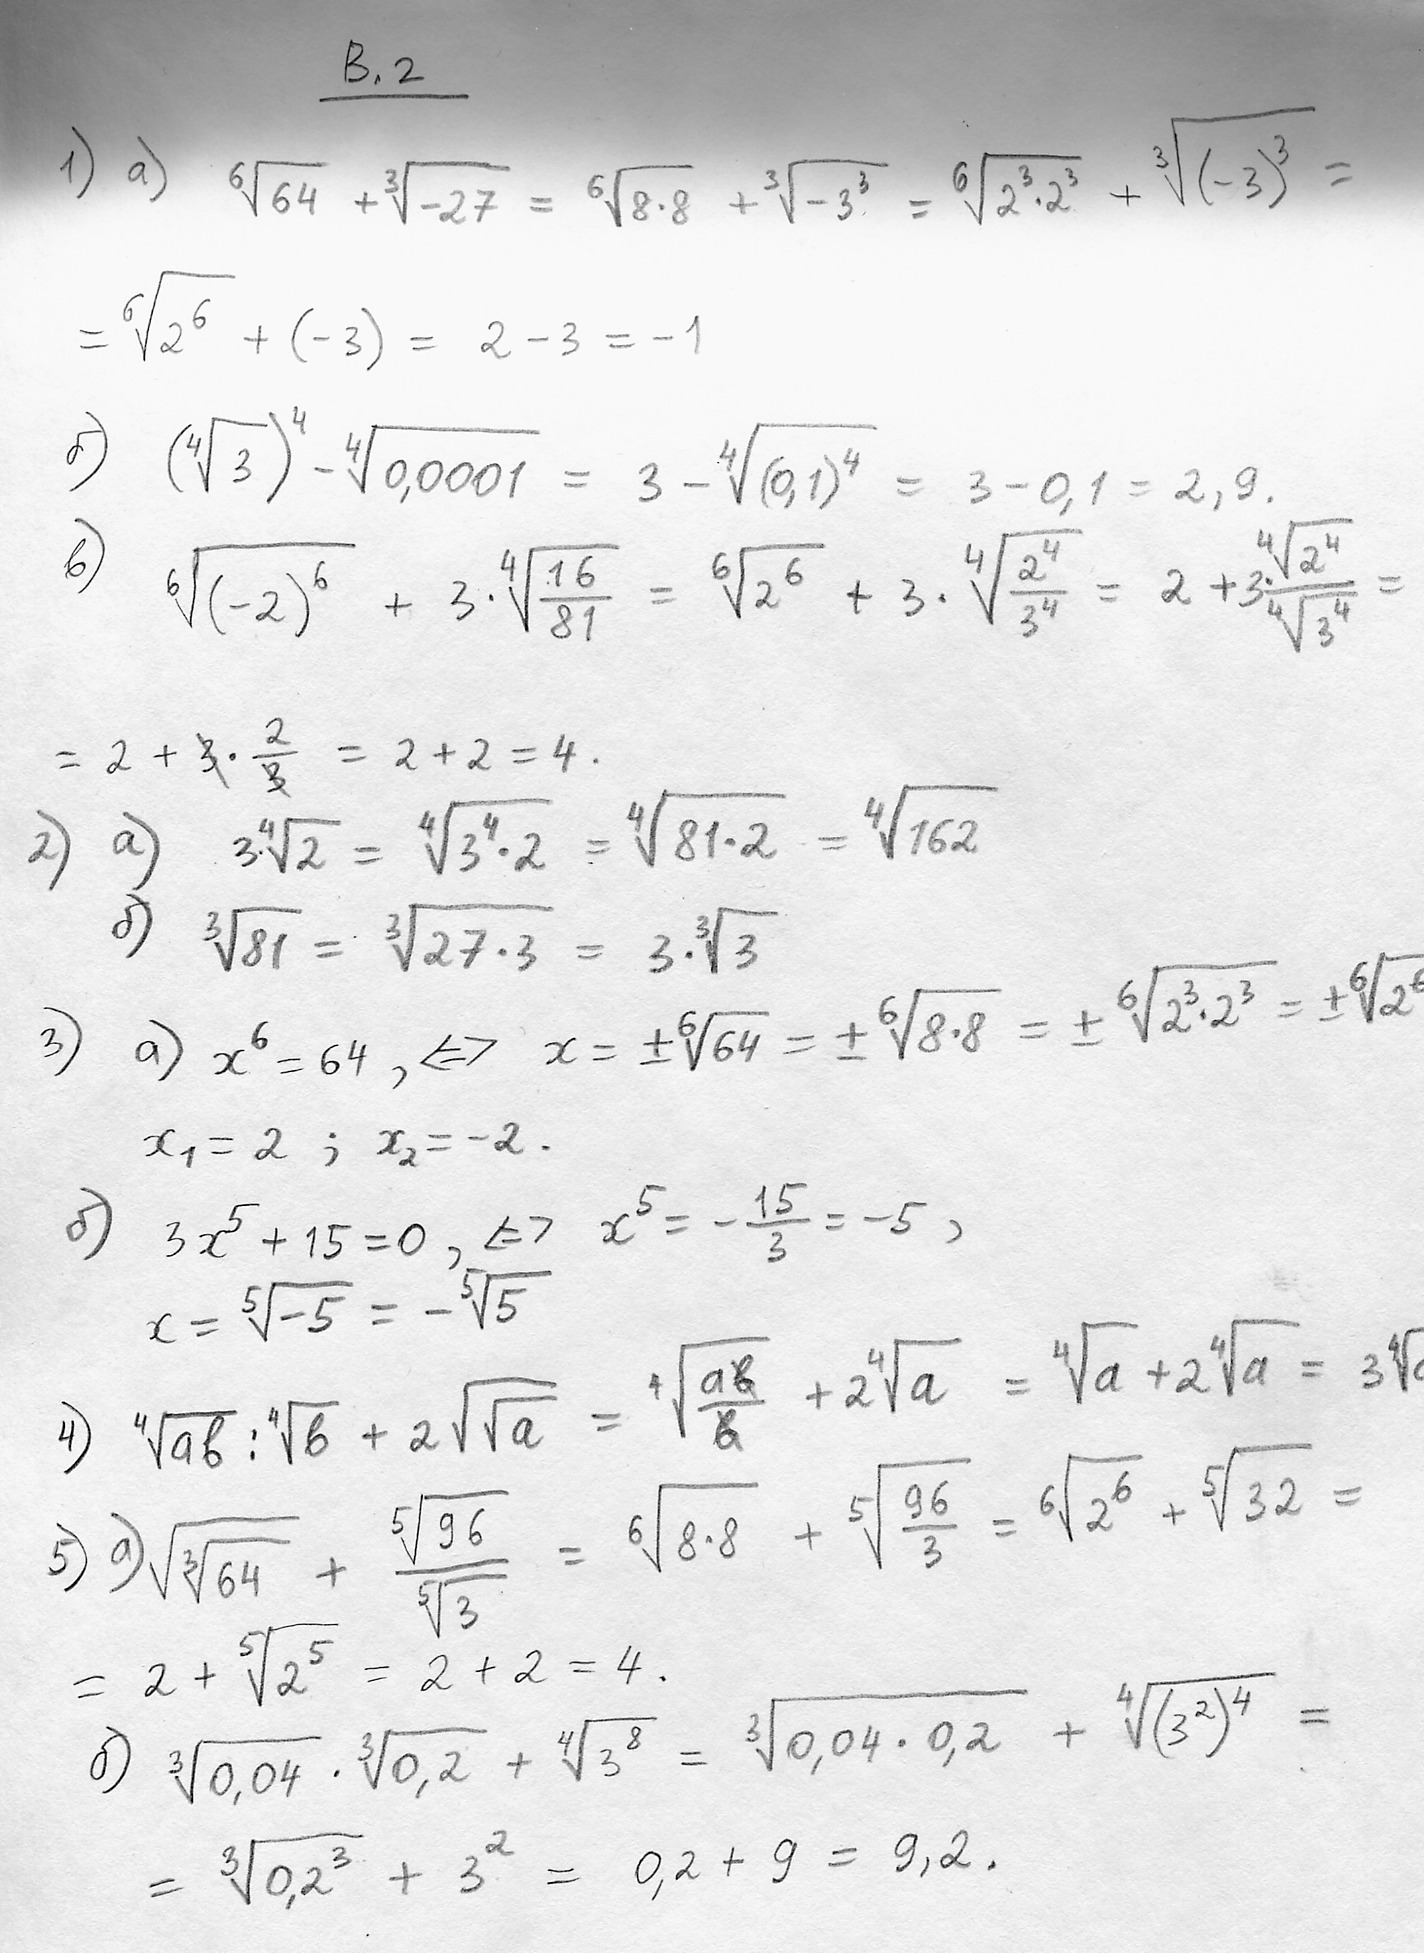 В.2
1) а) ⁶√64 + ³√-27 = ⁶√(8·8) + ³√(-3³) = ⁶√(2³·2³) + ³√((-3)³) =
= ⁶√(2⁶) + (-3) = 2 - 3 = -1
б) (⁴√3)⁴ - ⁴√0,0001 = 3 - ⁴√((0,1)⁴) = 3 - 0,1 = 2,9.
в) ⁶√((-2)⁶) + 3·⁴√(16/81) = ⁶√(2⁶) + 3·⁴√(2⁴/3⁴) = 2 + 3·⁴√(2⁴)/⁴√(3⁴) =
= 2 + 3·2/3 = 2 + 2 = 4.
2) а) 3·⁴√2 = ⁴√(3⁴·2) = ⁴√(81·2) = ⁴√162
б) ³√81 = ³√(27·3) = 3·³√3
3) а) x⁶ = 64, <=> x = ±⁶√64 = ±⁶√(8·8) = ±⁶√(2³·2³) = ±⁶√(2⁶
x₁ = 2 ; x₂ = -2.
б) 3x⁵ + 15 = 0, <=> x⁵ = -15/3 = -5,
x = ⁵√-5 = -⁵√5
4) ⁴√(ab) : ⁴√b + 2√(√a) = ⁴√(ab/b) + 2⁴√a = ⁴√a + 2⁴√a = 3⁴√a
5) а) √(³√64) + ⁵√96/⁵√3 = ⁶√(8·8) + ⁵√(96/3) = ⁶√(2⁶) + ⁵√32 =
= 2 + ⁵√(2⁵) = 2 + 2 = 4.
б) ³√0,04 · ³√0,2 + ⁴√(3⁸) = ³√(0,04·0,2) + ⁴√((3²)⁴) =
= ³√(0,2³) + 3² = 0,2 + 9 = 9,2.